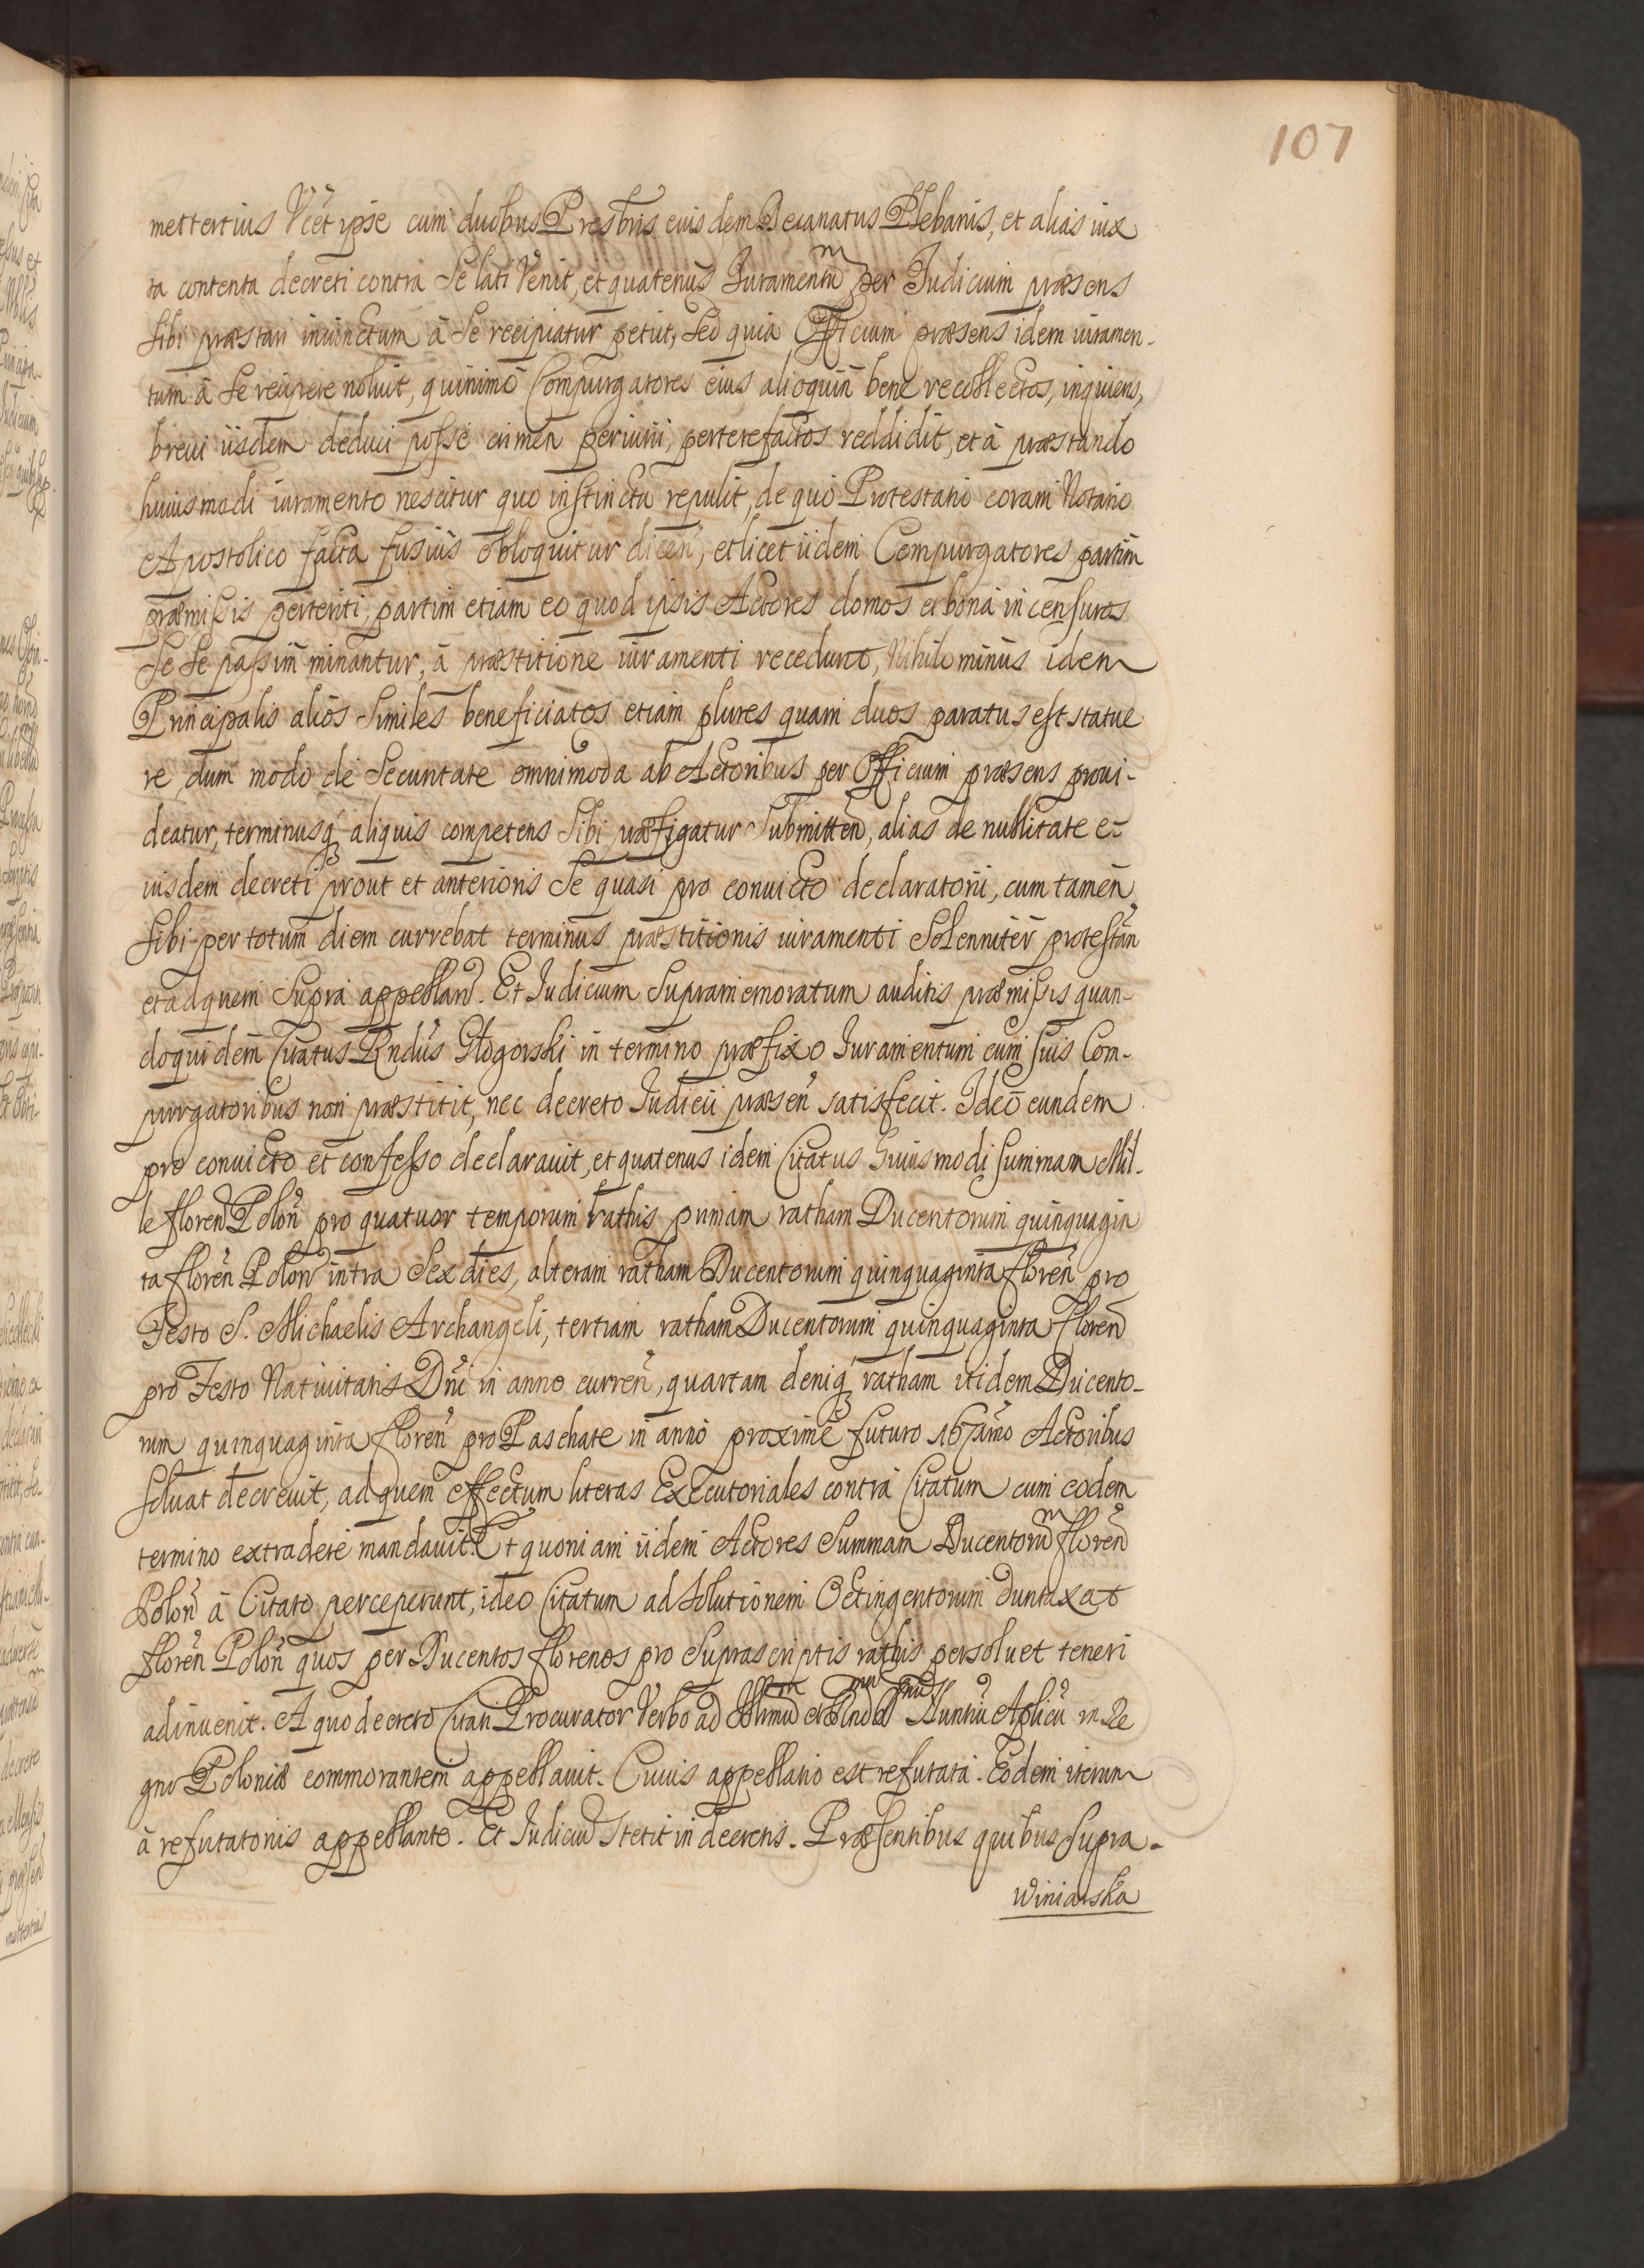 107
mettertius Vcèt ipse cum duobus Presbris eiusdem Decanatus Plebanis, et alias iux
ta contenta decreti contra Se lati Venit, et quatenus Iuramentum per Iudicium præsens
Sibi præstari iniunctum à Se recipiatur petiit, Sed quia Officium præsens idem iuramen-
tum à Se recipere noluit, quinimo Compurgatores eius alioquin bene recollectos, inquiens,
breui iisdem deduci posse crimen periurii, perterefactos reddidit, et à præstando
huiusmodi iuramento nescitur quo instinctu repulit, de quo Protestatio coram Notario
Apostolico facta fusius obloquitur dicen, et licet iidem Compurgatores partim
præmissis perteriti, partim etiam eo quod ipsis Actores domos et bona incensuros
Se Se passim minantur, à præstitione iuramenti recedunt, Nihilominus idem
Principalis alios Similes beneficiatos etiam plures quam duos paratus est statue
re dum modo de Securitate omnimoda ab Actoribus per Officium præsens proui-
deatur, terminusq aliquis competens Sibi præfigatur Submitten, alias de nullitate e-
iusdem decreti prout et anterioris Se quasi pro conuicto declaratorii, cum tamen
Sibi per totum diem currebat terminus præstitionis iuramenti Solenniter protestan
et ad quem Supra appelland. Et Iudicium Supramemoratum auditis præmissis quan-
doquidem Citatus Rndus Głogorski in termino præfixo Iuramentum cum suis Com-
purgatoribus non præstitit, nec decreto Iudicii præsen satisfecit. Ideo eundem
pro conuicto et confesso declarauit, et quatenus idem Citatus huiusmodi summam Mil-
le floren Polon pro quatuor temporum rathis primam ratham Ducentorum quinquagin
ta floren Polon intra Sex dies, alteram ratham Ducentorum quinquaginta floren pro
Festo S. Michaelis Archangeli, tertiam ratham Ducentorum quinquaginta floren
pro Festo Natiuitatis Dni in anno curren, quartam deniq ratham itidem Ducento-
rum quinquaginta floren pro Paschate in anno proxime futuro Actoribus
soluat decreuit, ad quem effectum literas Executoriales contra Citatum cum eodem
termino extradere mandauit. Et quoniam iidem Actores Summam Ducentorum floren
Polon à Citato perceperunt, ideo Citatum ad Solutionem Octingentorum duntaxat
floren Polon quos per Ducentos florenos pro Suprascriptis rathis persoluet teneri
adinuenit. A quo decreto Citati Procurator Verbo ad Illmum et Rndmum Dnum Nuntiu Aplicu in Re
gno Poloniæ commorantem appellauit. Cuius appellatio est refutata. Eodem iterum
à refutatoriis appellante. Et Iudiciu Stetit in decretis. Præsentibus quibus Supra.
Winiarska